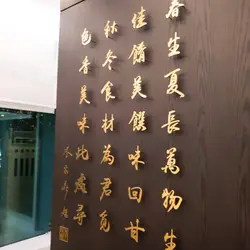 春生夏長萬物生
佳餚美饌味回甘
秋冬食材為君覓
色香美味此處尋